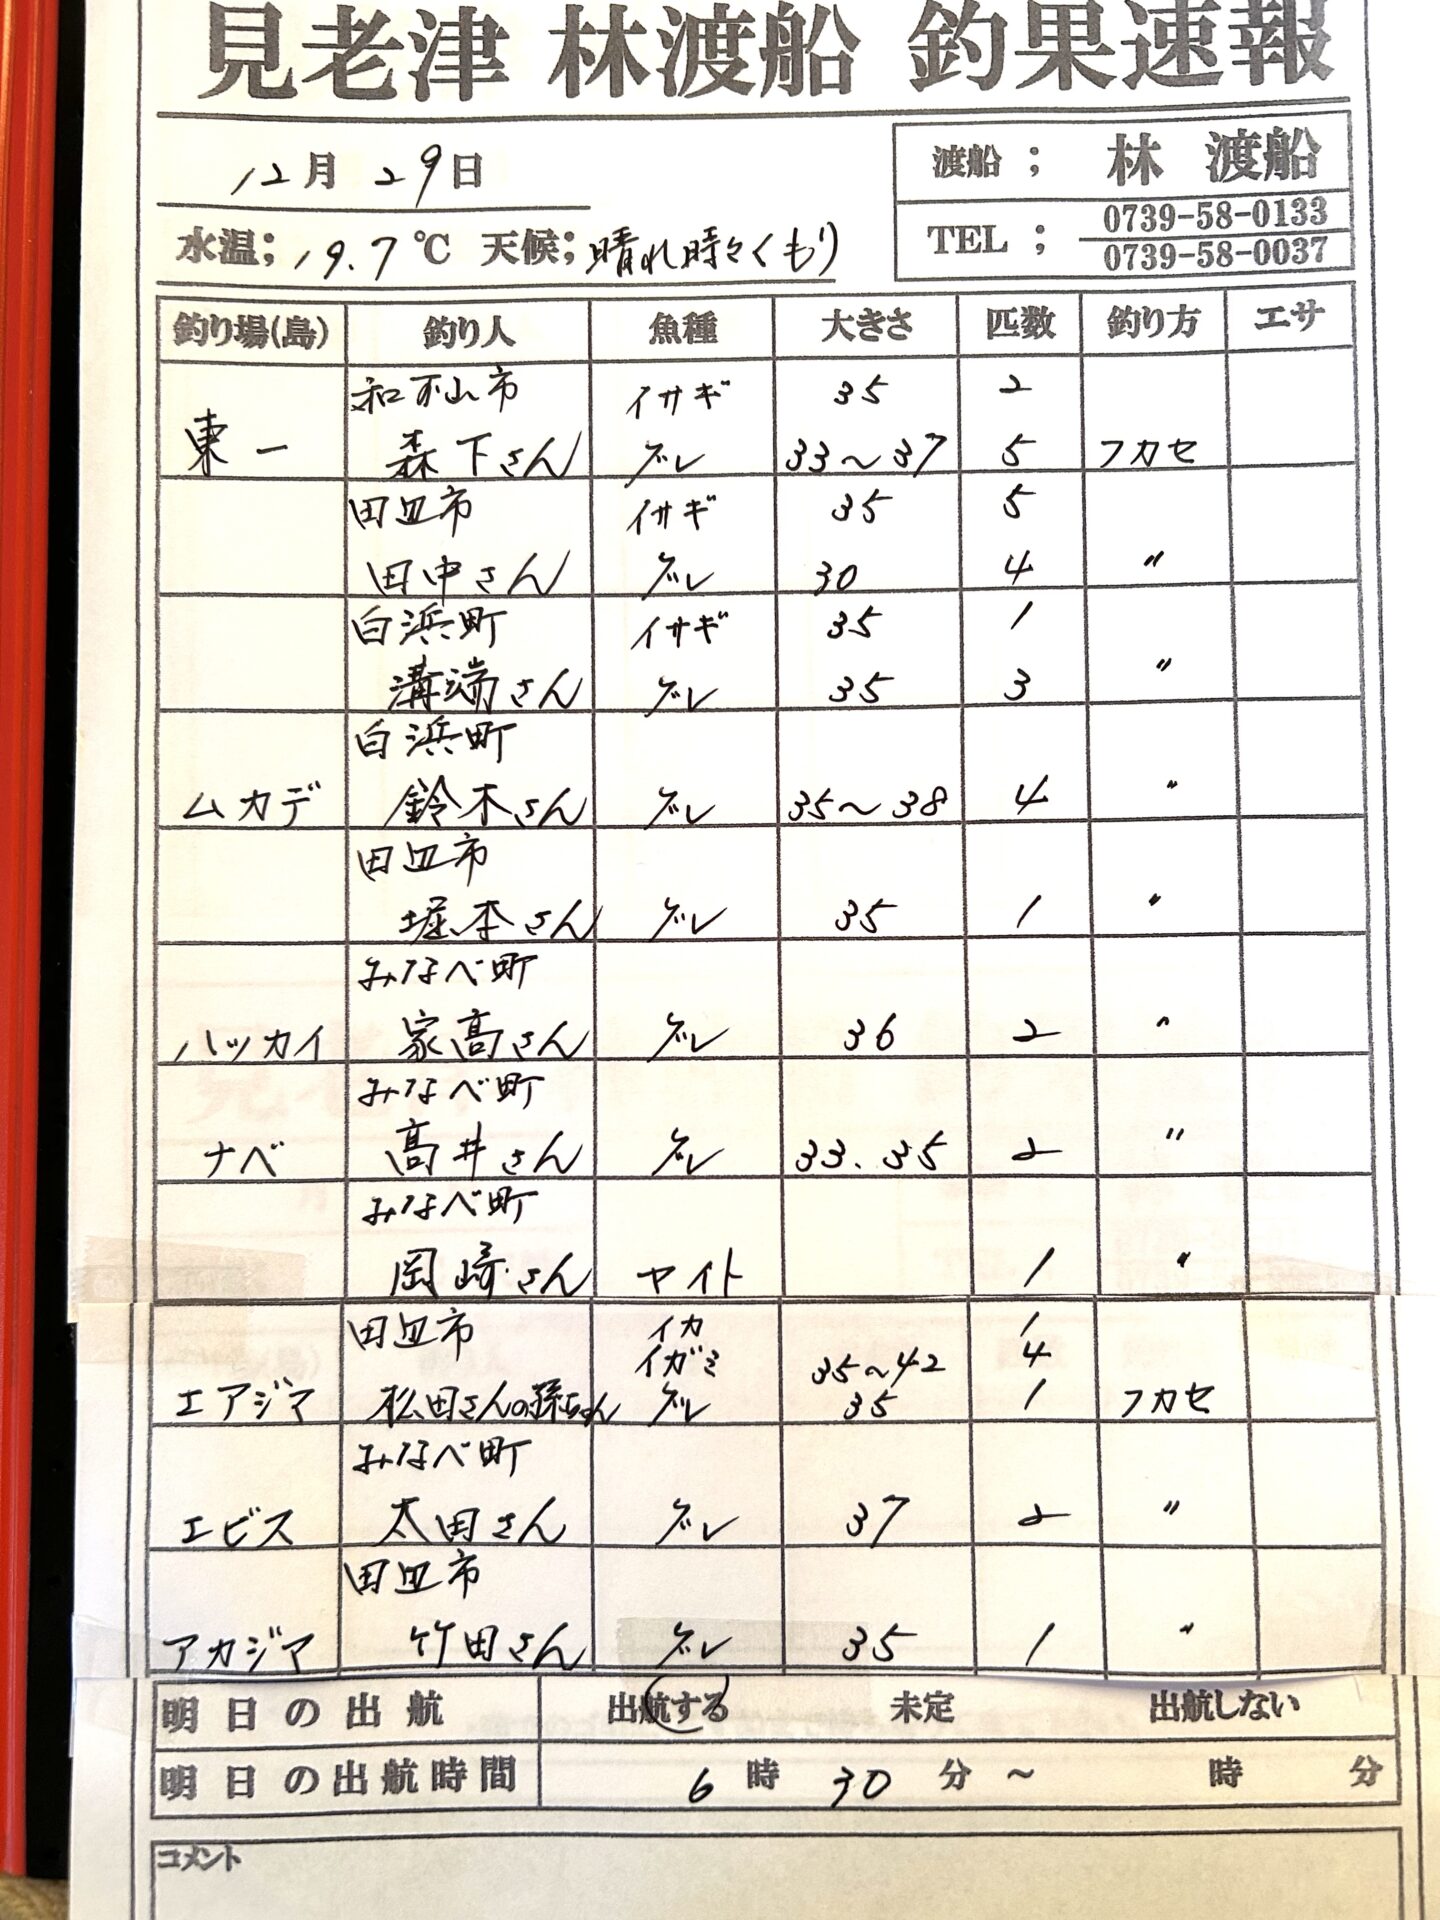 見老津 林渡船 釣果速報
12月29日
渡船 ; 林 渡船
水温; 19.7℃ 天候; 晴れ時々くもり
TEL ; 0739-58-0133
0739-58-0037
釣り場(島) 釣り人 魚種 大きさ 匹数 釣り方 エサ
和歌山市 イサギ 35 2
東一 森下さん グレ 33〜37 5 フカセ
田辺市 イサギ 35 5
田中さん グレ 30 4 〃
白浜町 イサギ 35 1
溝端さん グレ 35 3 〃
白浜町
ムカデ 鈴木さん グレ 35〜38 4 〃
田辺市
堀本さん グレ 35 1 〃
みなべ町
ハッカイ 家高さん グレ 36 2 〃
みなべ町
ナベ 髙井さん グレ 33.35 2 〃
みなべ町
岡崎さん ヤイト 1 〃
田辺市 イカ 1
イガミ 35〜42 4
エアジマ 松田さんの孫ちゃん グレ 35 1 フカセ
みなべ町
エビス 太田さん グレ 37 2 〃
田辺市
アカジマ 竹田さん グレ 35 1 〃
明日の出航 出航する 未定 出航しない
明日の出航時間 6時30分〜 時 分
コメント